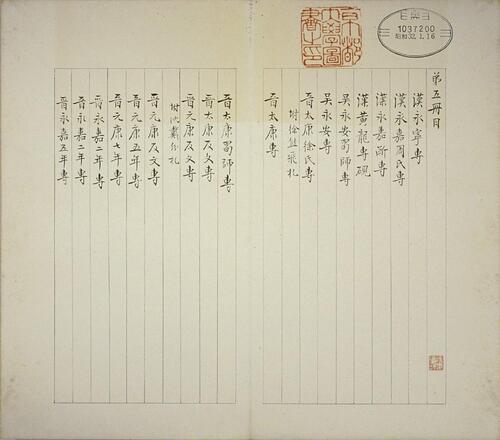 京都
大學圖
書之印
1037200
昭和32.1.16
弟五冊目
漢永寧專
漢永嘉周氏專
漢永嘉斷專
漢黃龍專硯
吳永安蜀師專
吳永安專
晉太康徐氏專
附徐熊飛札
晉太康專
晉太康蜀師專
晉太康反文專
晉元康反文專
附沈 札
晉元康反文專
晉元康五年專
晉元康七年專
晉永嘉二年專
晉永嘉二年專
晉永嘉五年專